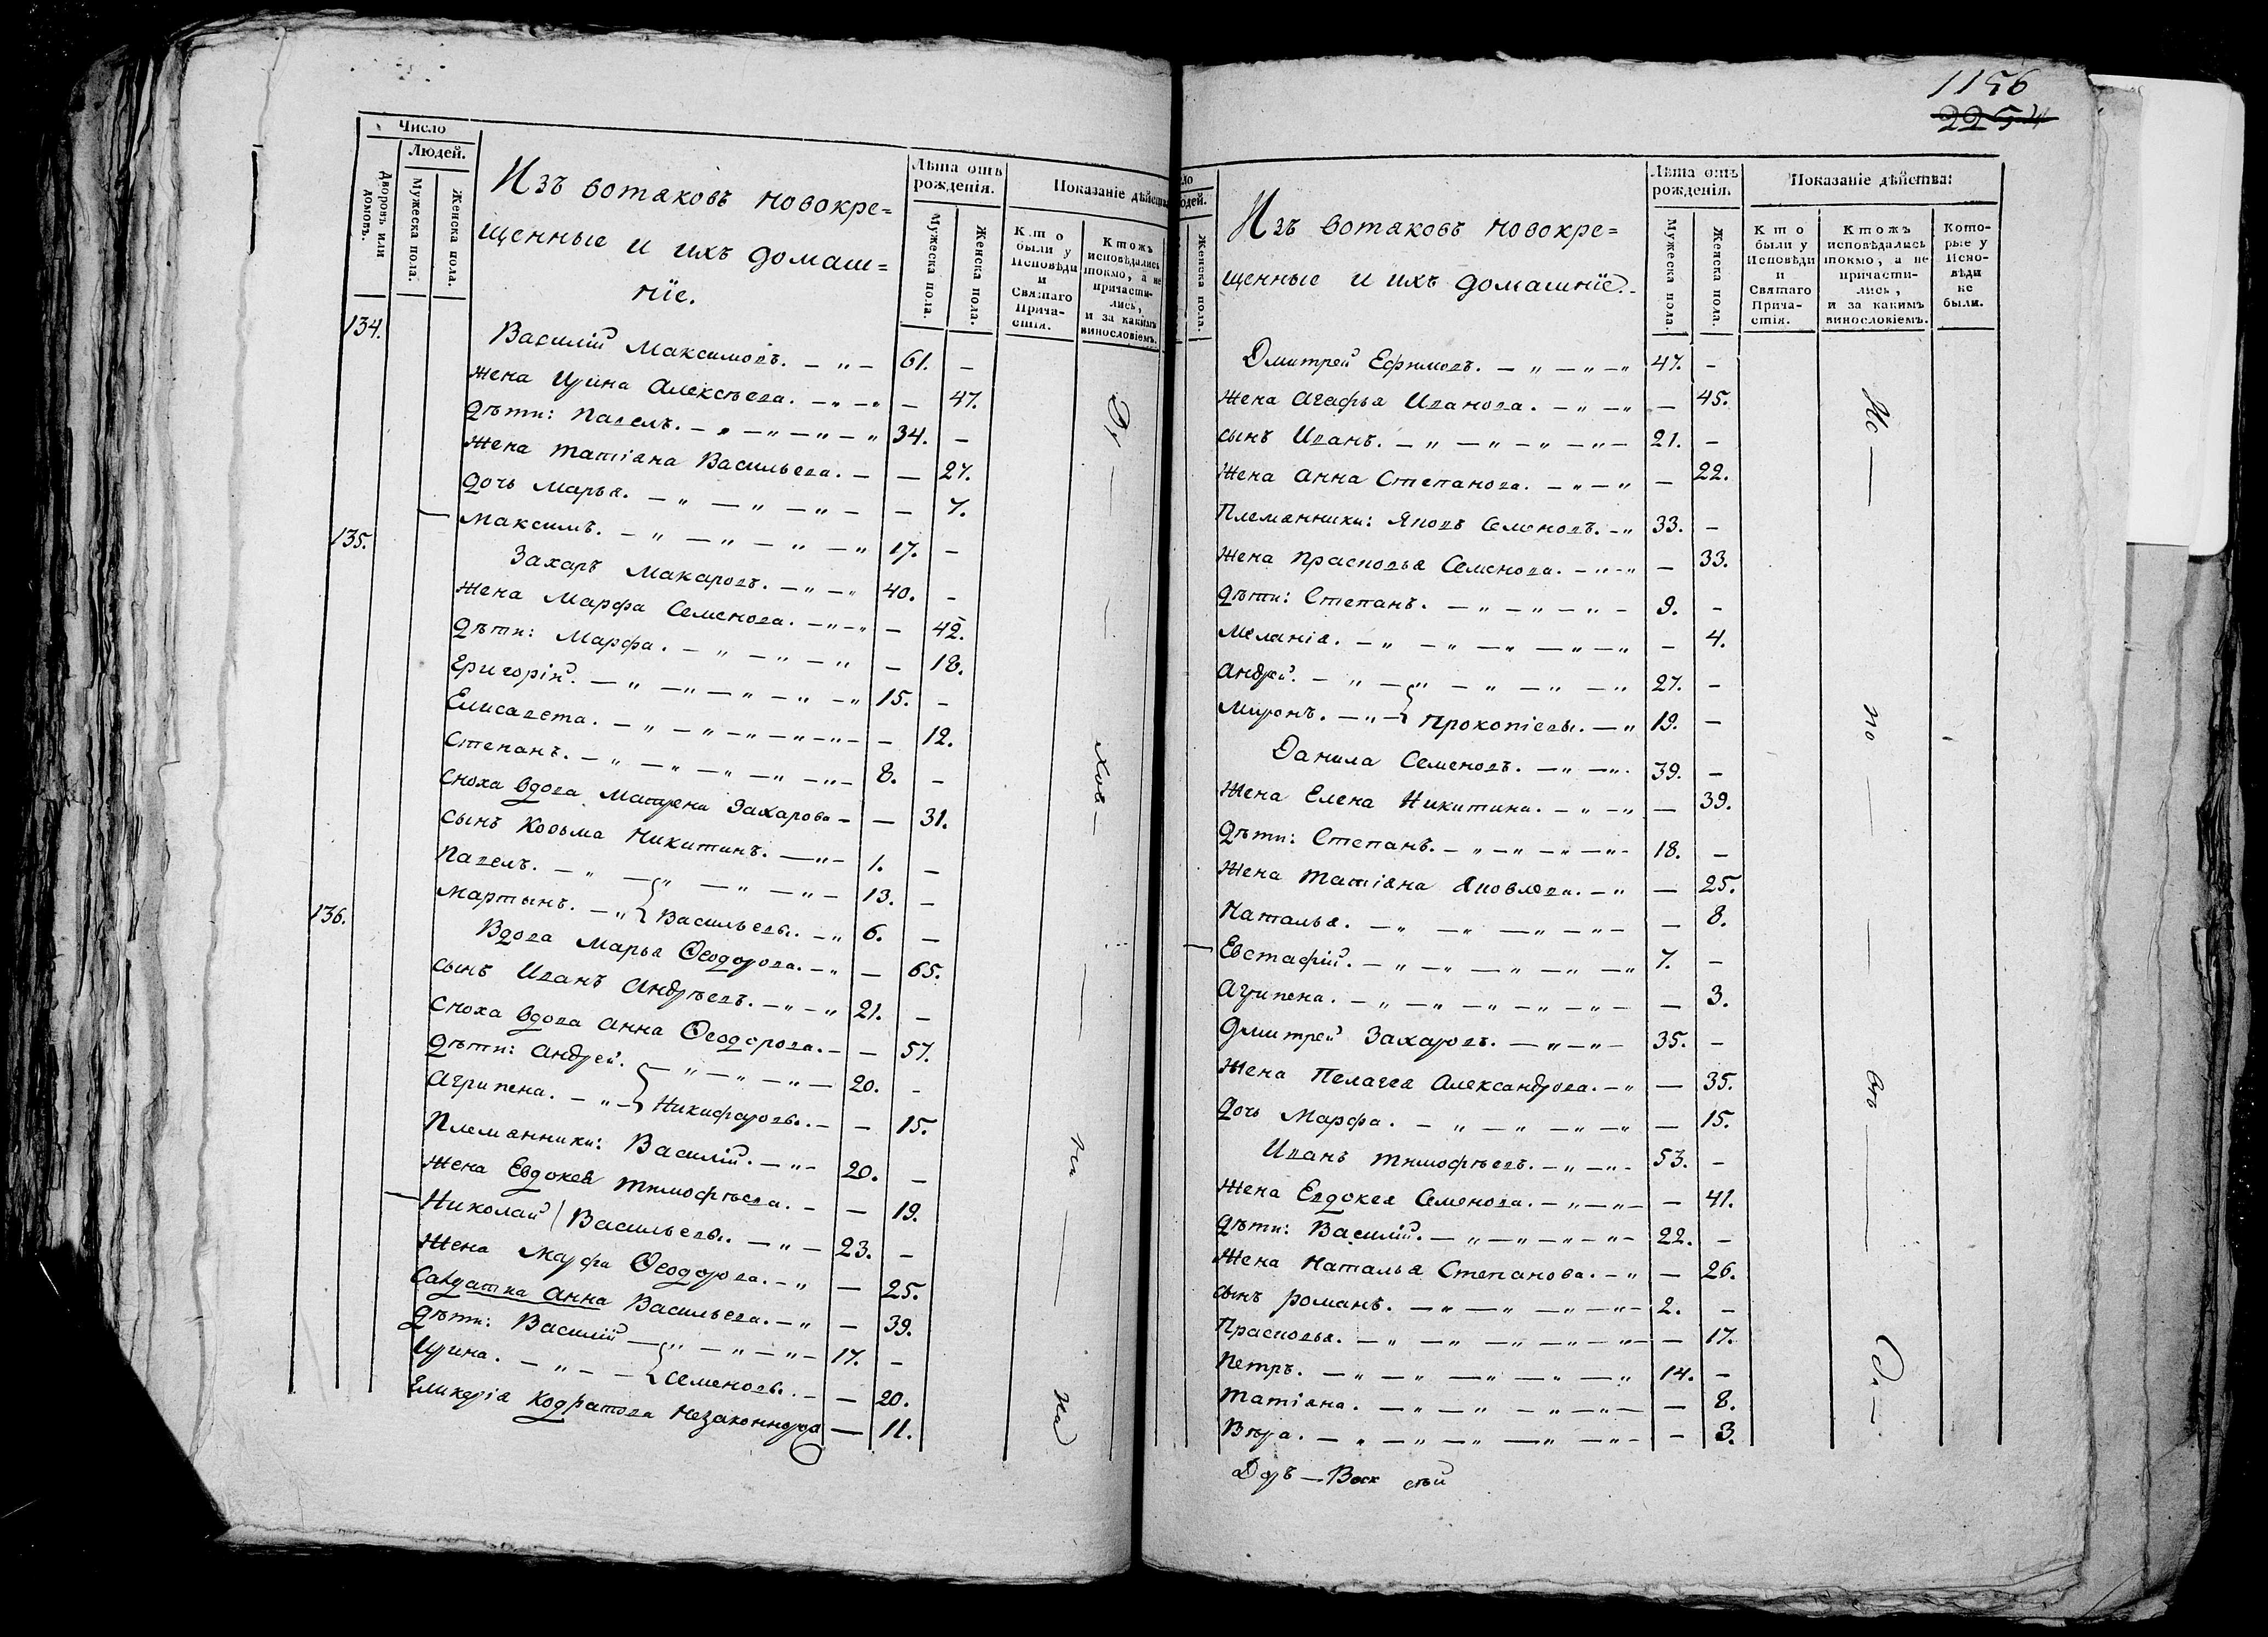 Число
Людей.
Дворовъ или домовъ.
Мужеска пола.
Женска пола.
Изъ вотяковъ новокре=
щенные и ихъ домаш=
нїе.
Лѣта отъ рожденія.
Мужеска пола.
Женска пола.
Показаніе дѣйства
Кто были у Исповѣди и Святаго Прича-стія.
Ктожъ исповѣдались токмо, а не причасти-лись, и за какимъ винословіемъ.
134.
Василій Максимовъ. 61. –
жена Ирина Алексѣева. – 47.
дѣти: Павелъ. 34. –
жена Татіяна Васильева. – 27.
дочь Марья. – 7.
Максимъ. 17. –
135.
Захаръ Макаровъ. 40. –
жена Марфа Семенова. – 42.
дѣти: Марфа. – 18.
Григорій. 15. –
Елисавета. – 12.
Степанъ. 8. –
Сноха вдова Матрена Захарова – 31.
сынъ Козьма Никитинъ. 1. –
Павелъ. 13. –
Мартынъ. } Васильевы. 6. –
136.
Вдова Марья Ѳеодорова. – 65.
сынъ Иванъ Андрѣевъ. 21. –
Сноха вдова Анна Ѳеодорова. – 57.
дѣти: Андрей. 20. –
Агрипена. } Никифоровы. – 15.
Племянники: Василій. 20. –
жена Евдокея Тимофѣева. – 19.
Николай / Васильевы. 23. –
жена Марфа Ѳеодорова. – 25.
Салдатка Анна Васильева. – 39.
дѣти: Василій 17. –
Ирина. } Семеновы. – 20.
Гликерія Кодратова незаконнорож – 11.
Ду – – хов – – на – Над
1156
2254
Женска пола.
Изъ вотяковъ новокре=
щенные и ихъ домашнїе.
Лѣта отъ рожденія.
Мужеска пола.
Женска пола.
Показаніе дѣйства:
Кто были у Исповѣди и Святаго Прича-стія.
Ктожъ исповѣдались токмо, а не причасти-лись, и за какимъ винословіемъ.
Кото-рые у Испо-вѣди не были.
Дмитрей Ефимовъ. 47. –
жена Агафья Иванова. – 45.
сынъ Иванъ. 21. –
жена Анна Степанова. – 22.
Племянники: Яковъ Семеновъ. 33. –
жена Прасковья Семенова. – 33.
дѣти: Степанъ. 9. –
Меланія. – 4.
Андрей. 27. –
Миронъ. } Прокопіевы. 19. –
Данила Семеновъ. 39. –
жена Елена Никитина. – 39.
дѣти: Степанъ. 18. –
жена Татіяна Яковлева. – 25.
Наталья. – 8.
Евстафій. 7. –
Агрипена. – 3.
Дмитрей Захаровъ. 35. –
жена Пелагея Александрова. – 35.
дочь Марфа. – 15.
Иванъ Тимофѣевъ. 53. –
жена Евдокея Семенова. – 41.
дѣти: Василій. 22. –
жена Наталья Степанова. – 26.
сынъ Романъ. 2. –
Прасковья. – 17.
Петръ. 14. –
Татіяна. – 8.
Вѣра. – 3.